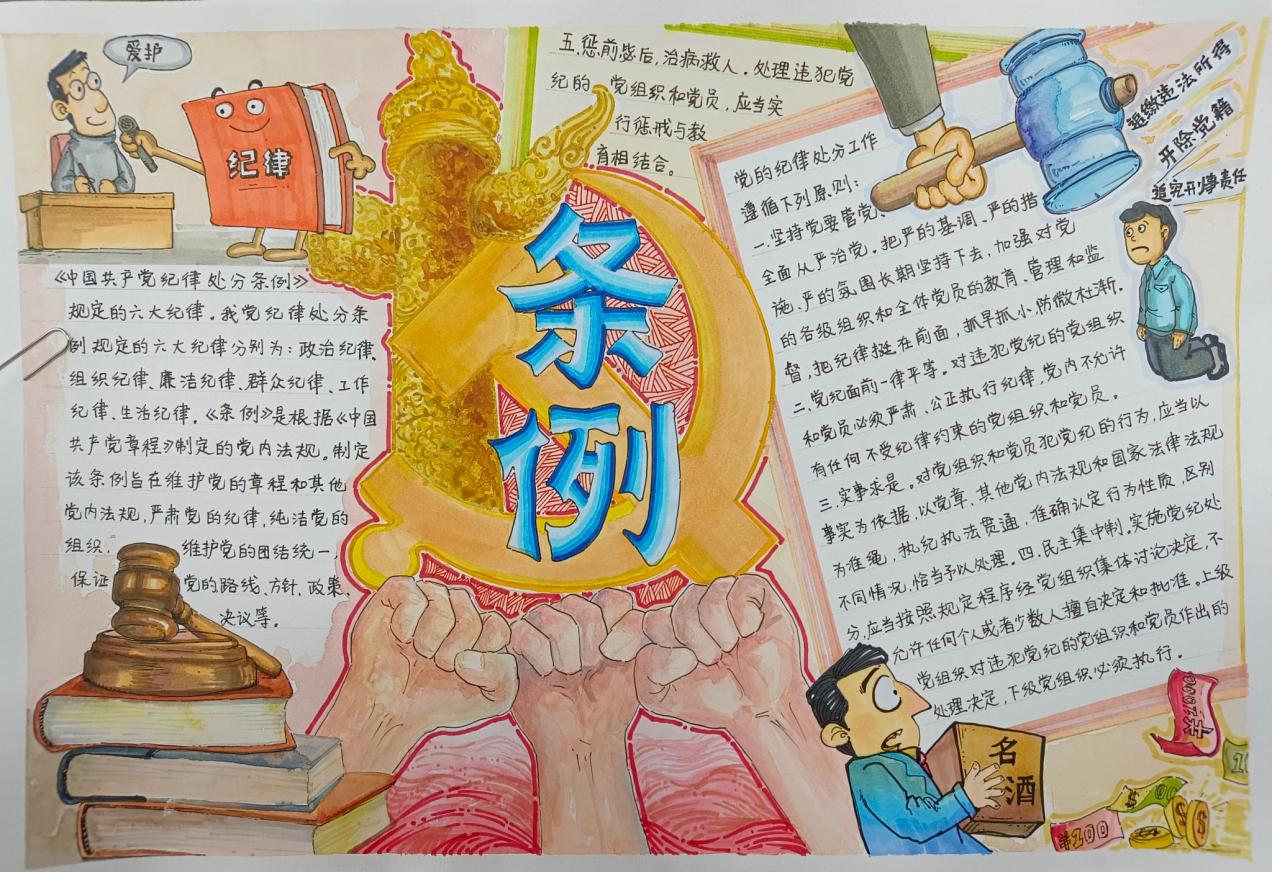 爱护
纪律
《中国共产党纪律处分条例》
规定的六大纪律。我党纪律处分条
例规定的六大纪律分别为：政治纪律、
组织纪律、廉洁纪律、群众纪律、工作
纪律、生活纪律。《条例》是根据《中国
共产党章程》制定的党内法规。制定
该条例旨在维护党的章程和其他
党内法规，严肃党的纪律，纯洁党的
组织，维护党的团结统一，
保证党的路线、方针、政策、
决议等。
条
例
五.惩前毖后，治病救人。处理违犯党
纪的党组织和党员，应当实
行惩戒与教
育相结合。
党的纪律处分工作
遵循下列原则：
一.坚持党要管党、
全面从严治党。把严的基调、严的措
施、严的氛围长期坚持下去，加强对党
的各级组织和全体党员的教育、管理和监
督，把纪律挺在前面，抓早抓小、防微杜渐。
二.党纪面前一律平等。对违犯党纪的党组织
和党员必须严肃、公正执行纪律，党内不允许
有任何不受纪律约束的党组织和党员。
三.实事求是。对党组织和党员犯党纪的行为，应当以
事实为依据，以党章、其他党内法规和国家法律法规
为准绳，执纪执法贯通，准确认定行为性质，区别
不同情况，恰当予以处理。四.民主集中制。实施党纪处
分，应当按照规定程序经党组织集体讨论决定，不
允许任何个人或者少数人擅自决定和批准。上级
党组织对违犯党纪的党组织和党员作出的
处理决定，下级党组织必须执行。
追缴违法所得
开除党籍
追究刑事责任
名
酒
¥100